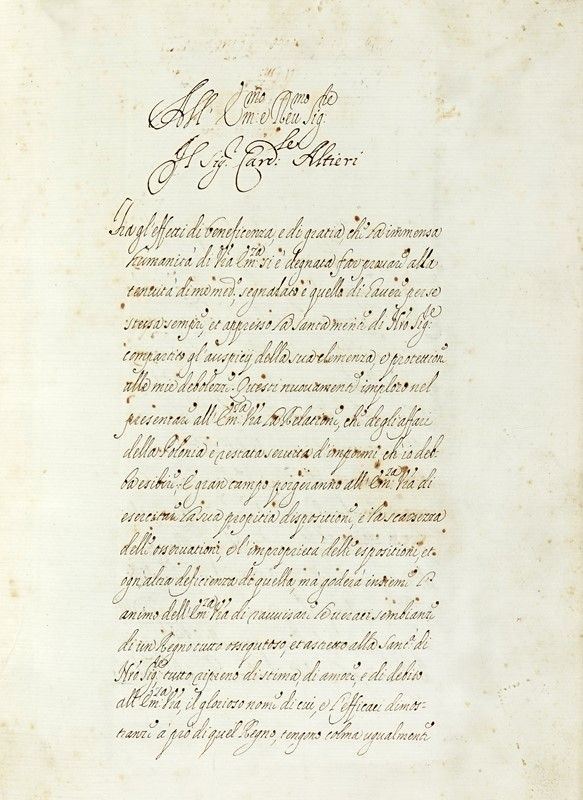 All' Em.mo e Reu.mo Sig.re
Il Sig.r Card.le Altieri
Tra gl'effetti di beneficenza, e di gratia, che la immensa
humanità di Vra Em.za si è degnata far prouare alla
tenuità di me med.o, segnalato è quello di hauere per se
stessa sempre, et appresso la Santa mem.a di Nro Sig.re
compartito gl'auspicij della sua clemenza, e protettione
alle mie debolezze. Questi nuouamente imploro nel
presentare all'Em.za Vra la Relatione, che degli affari
della Polonia è restata seruita d'impormi, ch'io deb-
ba esibire, e gran campo porgeranno all'Em.za Vra di
esercitare la sua propitia dispositione, e la scarsezza
delle osseruationi, e l'improprietà delle espositioni, et
ogn'altra deficienza di quella, mà goderà insieme l'
animo dell'Em.za Vra di rauuisare le veraci sembianze
di un Regno tutto ossequioso, et astretto alla Sant.à di
Nro Sig.re tutto ripieno di stima, di amore, e di debito
all'Em.za Vra, il glorioso nome di cui, e l'efficaci dimos-
tranze à prò di quel Regno, tengono colma ugualmente